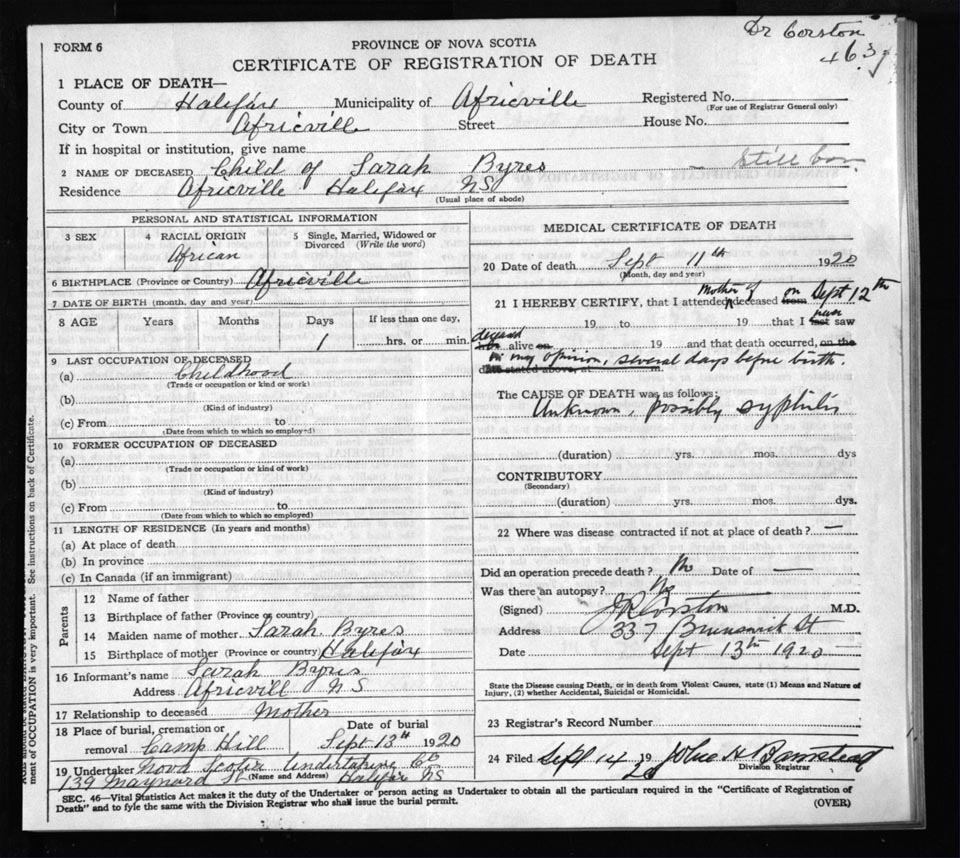 Dr Corston
463
FORM 6
PROVINCE OF NOVA SCOTIA
CERTIFICATE OF REGISTRATION OF DEATH
1 PLACE OF DEATH—
County of Halifax Municipality of Africville Registered No.
(For use of Registrar General only)
City or Town Africville Street House No.
If in hospital or institution, give name
2 NAME OF DECEASED Child of Sarah Byres - Still born
Residence Africville Halifax NS
(Usual place of abode)
PERSONAL AND STATISTICAL INFORMATION
3 SEX 4 RACIAL ORIGIN 5 Single, Married, Widowed or Divorced (Write the word)
African
6 BIRTHPLACE (Province or Country) Africville
7 DATE OF BIRTH (month, day and year)
8 AGE Years Months Days If less than one day,
1 hrs. or min.
9 LAST OCCUPATION OF DECEASED
(a) Childhood
(Trade or occupation or kind or work)
(b)
(Kind of industry)
(c) From to
(Date from which to which so employed)
10 FORMER OCCUPATION OF DECEASED
(a)
(Trade or occupation or kind or work)
(b)
(Kind of industry)
(c) From to
(Date from which to which so employed)
11 LENGTH OF RESIDENCE (In years and months)
(a) At place of death
(b) In province
(c) In Canada (if an immigrant)
Parents
12 Name of father
13 Birthplace of father (Province or country)
14 Maiden name of mother Sarah Byres
15 Birthplace of mother (Province or country) Halifax
16 Informant's name Sarah Byres
Address Africvill N S
17 Relationship to deceased Mother
18 Place of burial, cremation or Date of burial
removal Camp Hill Sept 13th 1920
19 Undertaker Nova Scotia Undertaking Co
139 Maynard St (Name and Address) Halifax NS
MEDICAL CERTIFICATE OF DEATH
20 Date of death Sept 11th 1920
(Month, day and year)
21 I HEREBY CERTIFY, that I attended mother of deceased from on Sept 12th
19 to 19 that I last never saw
deceased alive on 19 and that death occurred, on the
in my opinion, several days before birth.
date stated above, at m
The CAUSE OF DEATH was as follows:
Unknown, possibly syphilis
(duration) yrs. mos. dys
CONTRIBUTORY
(Secondary)
(duration) yrs. mos. dys.
22 Where was disease contracted if not at place of death? —
Did an operation precede death? No Date of —
Was there an autopsy? No
(Signed) JR Corston M.D.
Address 337 Brunswick St
Date Sept 13th 1920
State the Disease causing Death, or in death from Violent Causes, state (1) Means and Nature of
Injury, (2) whether Accidental, Suicidal or Homicidal.
23 Registrar's Record Number
24 Filed Sept 14 1920 John H Barnstead
Division Registrar
SEC. 46—Vital Statistics Act makes it the duty of the Undertaker or person acting as Undertaker to obtain all the particulars required in the "Certificate of Registration of
Death" and to fyle the same with the Division Registrar who shall issue the burial permit.
(OVER)
ment of OCCUPATION is very important. See instructions on back of Certificate.